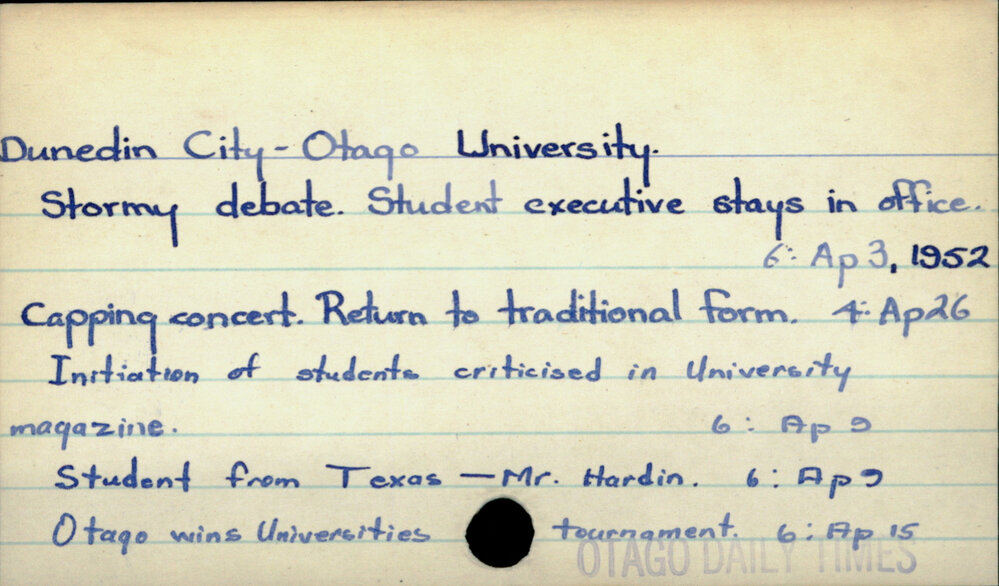 Dunedin City - Otago University.
Stormy debate. Student executive stays in office.
6: Ap 3, 1952
Capping concert. Return to traditional form. 4: Ap 26
Initiation of students criticised in University
magazine. 6: Ap 9
Student from Texas - Mr. Hardin. 6: Ap 9
Otago wins Universities tournament. 6: Ap 15
OTAGO DAILY TIMES